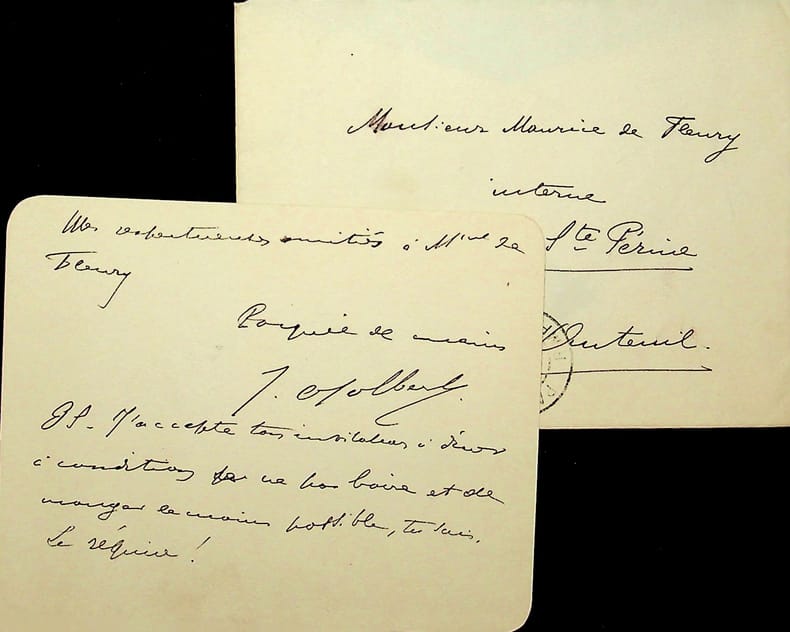 Monsieur Maurice de Fleury
interne
Ste Périne
Auteuil.
Mes respectueuses amitiés à Mme de
Fleury
Poignée de mains
J.
PS - J'accepte ton invitation à dîner
à condition de ne pas boire et de
manger le moins possible, tu sais.
Le régime !